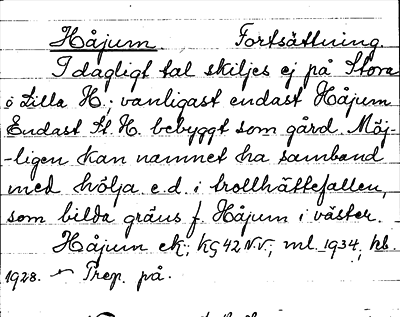 Håjum. Fortsättning.
I dagligt tal skiljes ej på Stora
o Lilla H.; vanligast endast Håjum
Endast St. H. bebyggt som gård. Möj-
-ligen kan namnet ha samband
med hölja e.d. i trollhättefallen,
som bilda gräns f. Håjum i väster.
Håjum ek; KG 42 N.V., ml. 1934, hb.
1928. — Prep. på.